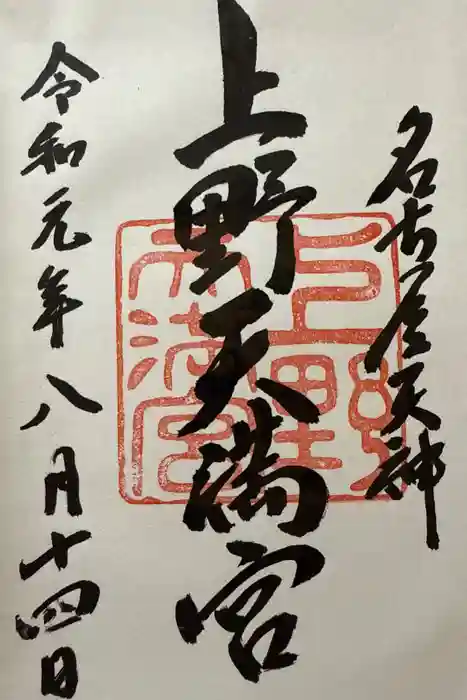 名古屋天神
上野天満宮
令和元年八月十四日
上野
天満宮